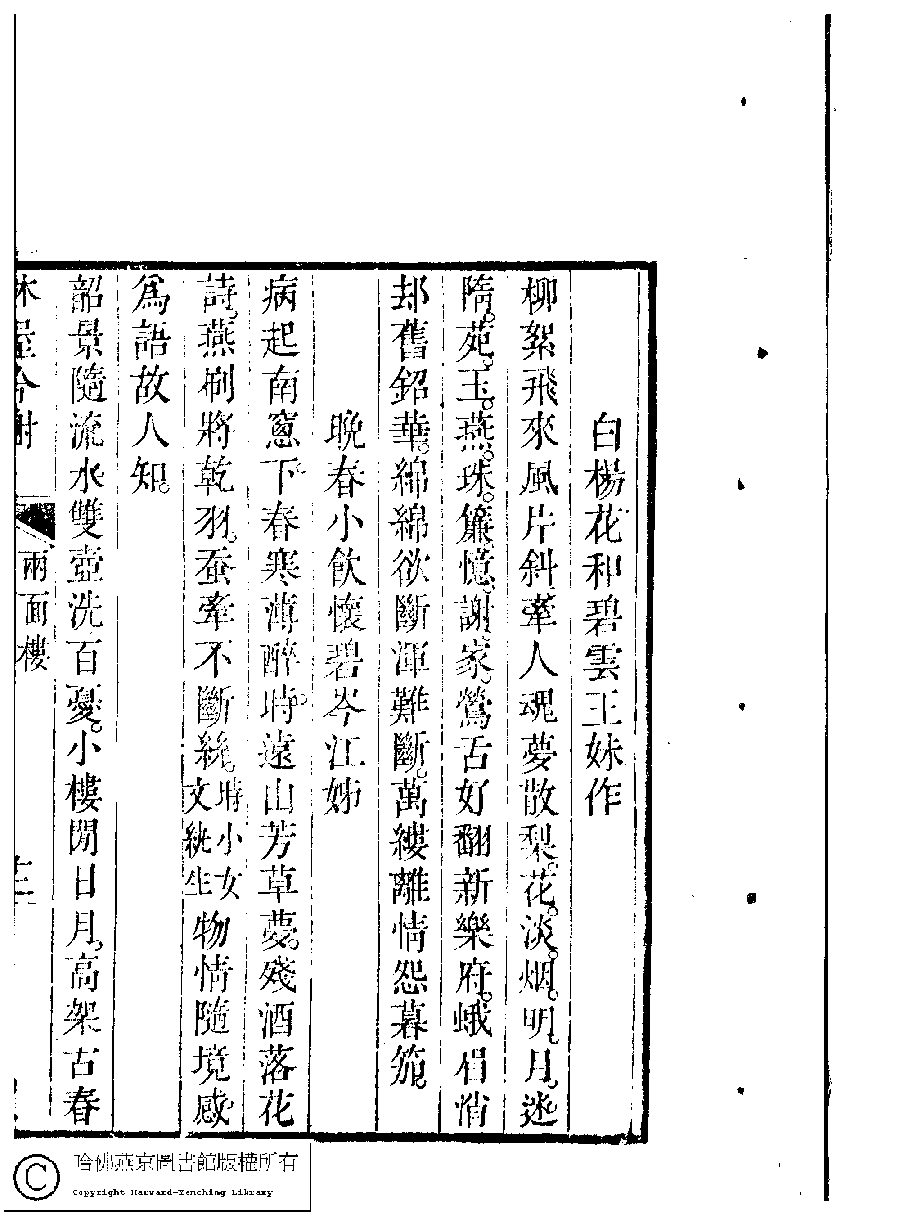 白楊花和碧雲王妹作
柳絮飛來風片斜牽人魂夢散梨花淡烟明月迷
隋苑玉燕珠簾憶謝家鶯舌好翻新樂府蛾眉悄
却舊鉛華綿綿欲斷渾難斷萬縷離情怨暮笳
晚春小飲懷碧岑江姊
病起南窻下春寒薄醉時遠山芳草夢殘酒落花
詩燕刷將乾羽蚕牽不斷絲時小女文絖生物情隨境感
爲語故人知
韶景隨流水雙壺洗百憂小樓閒日月高架古春
林屋今謝
兩面樓
十二
哈佛燕京圖書館版權所有
Copyright Harvard-Yenching Library